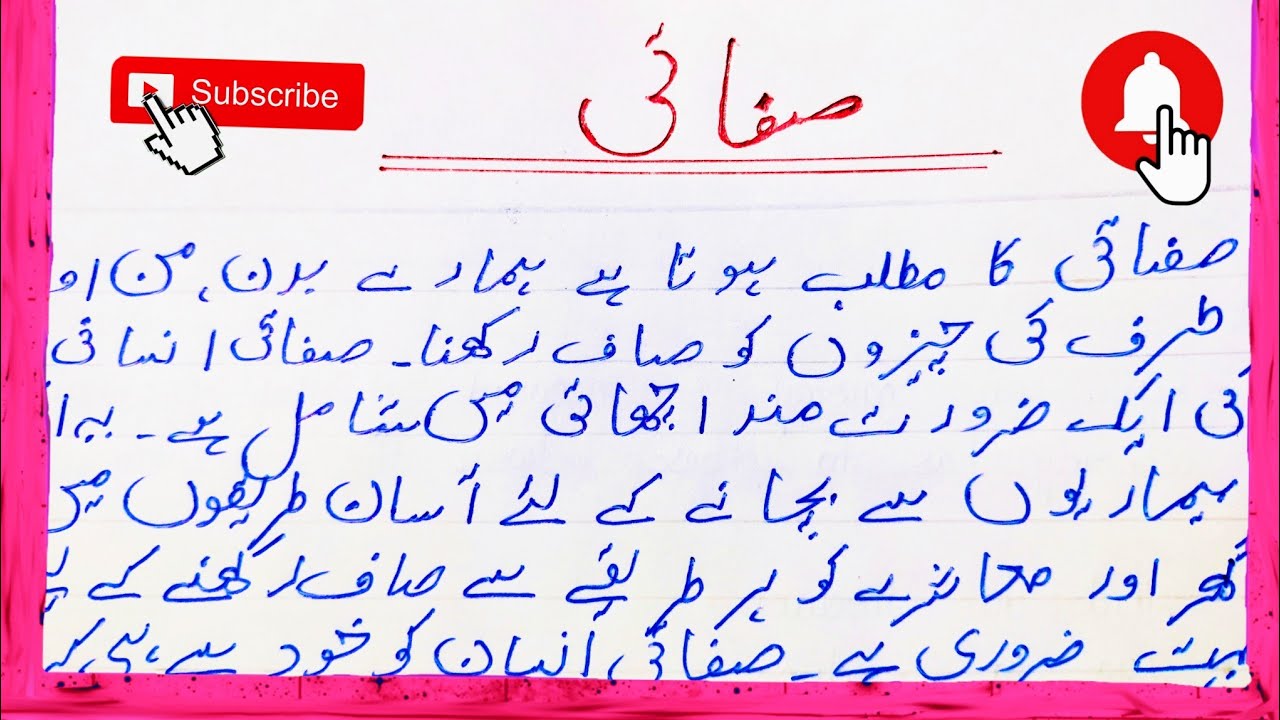 Subscribe
صفائی
صفائی کا مطلب ہوتا ہے ہمارے بدن، من او
طرف کی چیزوں کو صاف رکھنا۔ صفائی انسانی
کی ایک ضرورت مند اچھائی میں شامل ہے۔ یہ ا
بیماریوں سے بچانے کے لئے آسان طریقوں میں
گھر اور معاشرے کو ہر طریقے سے صاف رکھنے کے لیے
بہت ضروری ہے۔ صفائی، انسان کو خود سے،